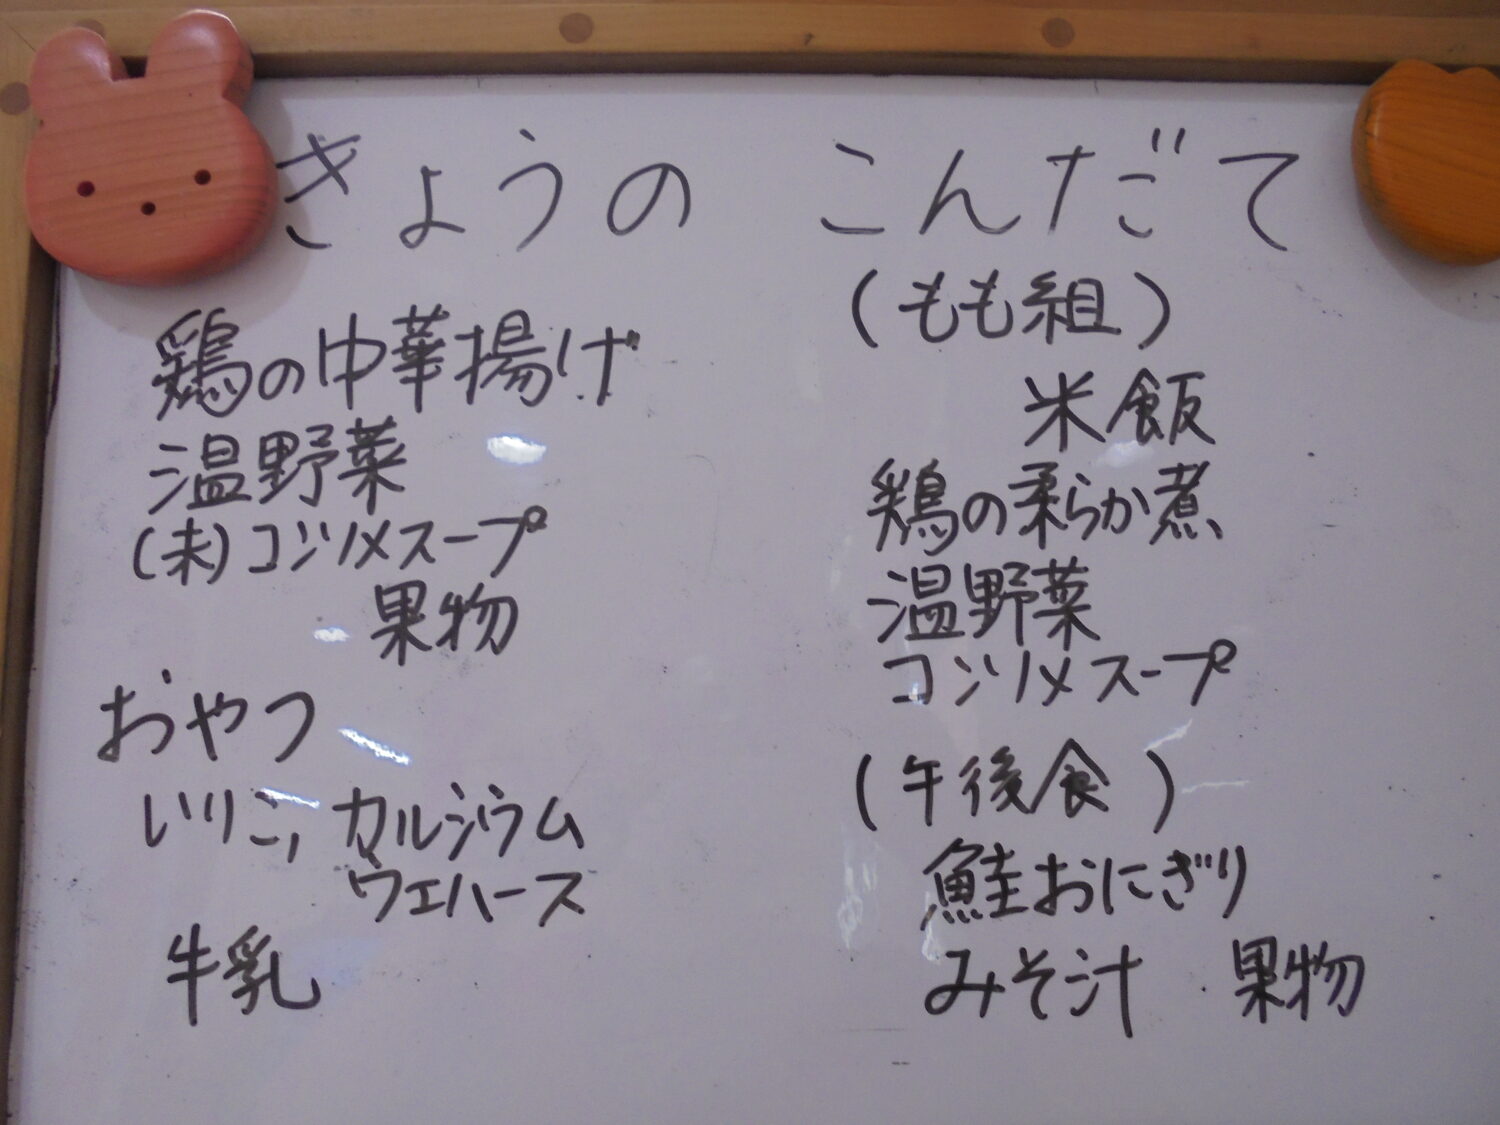 きょうの こんだて
鶏の中華揚げ
温野菜
(未)コンソメスープ
果物
おやつ
いりこ,カルシウム
ウエハース
牛乳
(もも組)
米飯
鶏の柔らか煮
温野菜
コンソメスープ
(午後食)
鮭おにぎり
みそ汁 果物